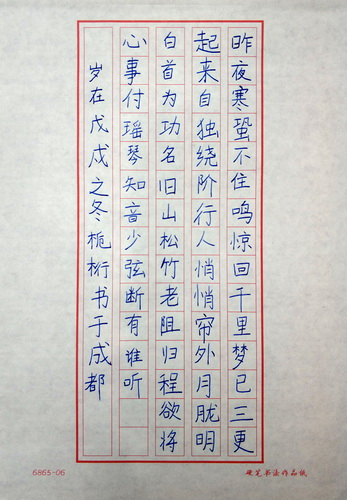 昨夜寒蛩不住鸣惊回千里梦已三更
起来自独绕阶行人悄悄帘外月胧明
白首为功名旧山松竹老阻归程欲将
心事付瑶琴知音少弦断有谁听
岁在戊戌之冬栀桁书于成都
6865-06
硬笔书法作品纸